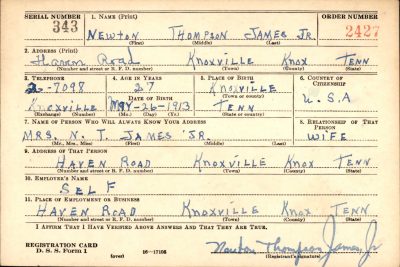 SERIAL NUMBER 1. NAME (Print) ORDER NUMBER
343 NEWTON THOMPSON JAMES JR. 2427
(First) (Middle) (Last)
2. ADDRESS (Print)
Haven Road Knoxville Knox Tenn
(Number and street or R. F. D. number) (Town) (County) (State)
3. TELEPHONE 4. AGE IN YEARS 5. PLACE OF BIRTH 6. COUNTRY OF CITIZENSHIP
2-7098 27 Knoxville
(Town or county)
DATE OF BIRTH U.S.A
Knoxville MAY-26-1913 TENN
(Exchange) (Number) (Mo.) (Day) (Yr.) (State or country)
7. NAME OF PERSON WHO WILL ALWAYS KNOW YOUR ADDRESS 8. RELATIONSHIP OF THAT PERSON
MRS. N. T. JAMES JR. WIFE
(Mr., Mrs., Miss) (First) (Middle) (Last)
9. ADDRESS OF THAT PERSON
HAVEN ROAD Knoxville Knox TENN
(Number and street or R. F. D. number) (Town) (County) (State)
10. EMPLOYER'S NAME
SELF
11. PLACE OF EMPLOYMENT OR BUSINESS
HAVEN ROAD Knoxville Knox TENN
(Number and street or R. F. D. number) (Town) (County) (State)
I AFFIRM THAT I HAVE VERIFIED ABOVE ANSWERS AND THAT THEY ARE TRUE.
REGISTRATION CARD
D. S. S. Form 1 16-17105 Newton Thompson James, Jr
(over) (Registrant's signature)